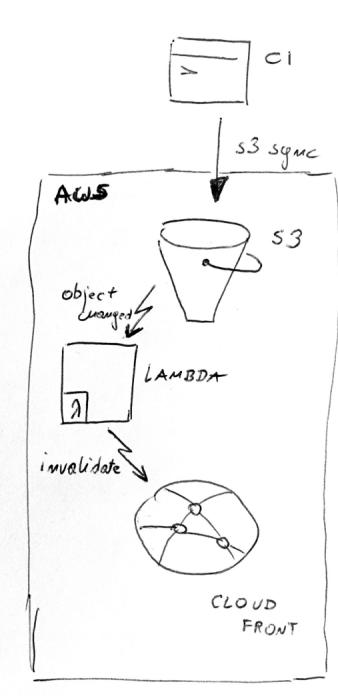 CI
>
s3 sync
AWS
S3
object
changed
LAMBDA
λ
invalidate
CLOUD
FRONT